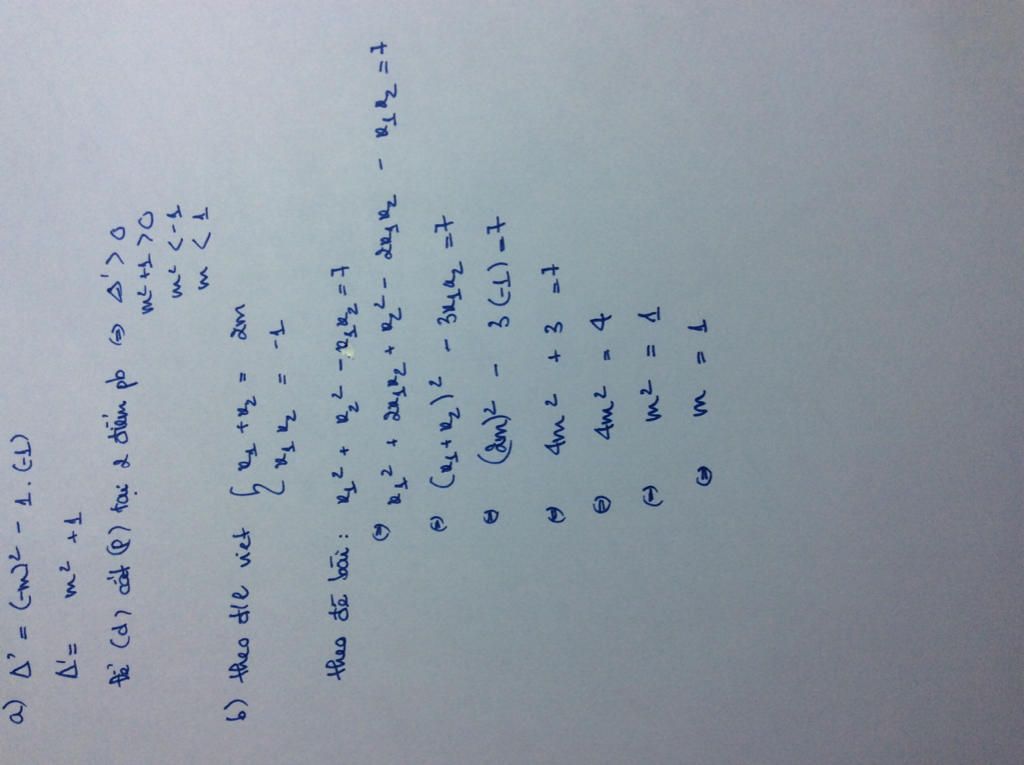 a) Δ' = (-m)² - 1.(-1)
Δ' = m² + 1
để (d) cắt (P) tại 2 điểm pb ⇔ Δ' > 0
m² + 1 > 0
m² < -1
m < 1
b) theo đlí viet { x₁ + x₂ = 2m
x₁x₂ = -1
theo đề bài : x₁² + x₂² - x₁x₂ = 7
⇔ x₁² + 2x₁x₂ + x₂² - 2x₁x₂ - x₁x₂ = 7
⇔ (x₁ + x₂)² - 3x₁x₂ = 7
⇔ (2m)² - 3(-1) = 7
⇔ 4m² + 3 = 7
⇔ 4m² = 4
⇔ m² = 1
⇔ m = 1